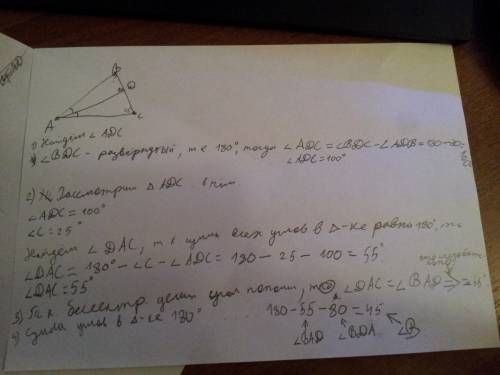 B
D
A
C
1) Найдём ∠ADC
∠BDC - развёрнутый, т.е 180°, тогда ∠ADC = ∠BDC - ∠ADB = 180-80=
∠ADC = 100°
2) Рассмотрим △ADC. В нём
∠ADC = 100°
∠C = 25°
Найдём ∠DAC, т к сумма всех углов в △-ке равна 180°, то
∠DAC = 180° - ∠C - ∠ADC = 180 - 25 - 100 = 55°
∠DAC = 55°
3) Т.к. биссектр. делит угол пополам, то ∠DAC = ∠BAD =
4) Сумма углов в △-ке 180°
180-55-80=45
∠BAD ∠BDA ∠B